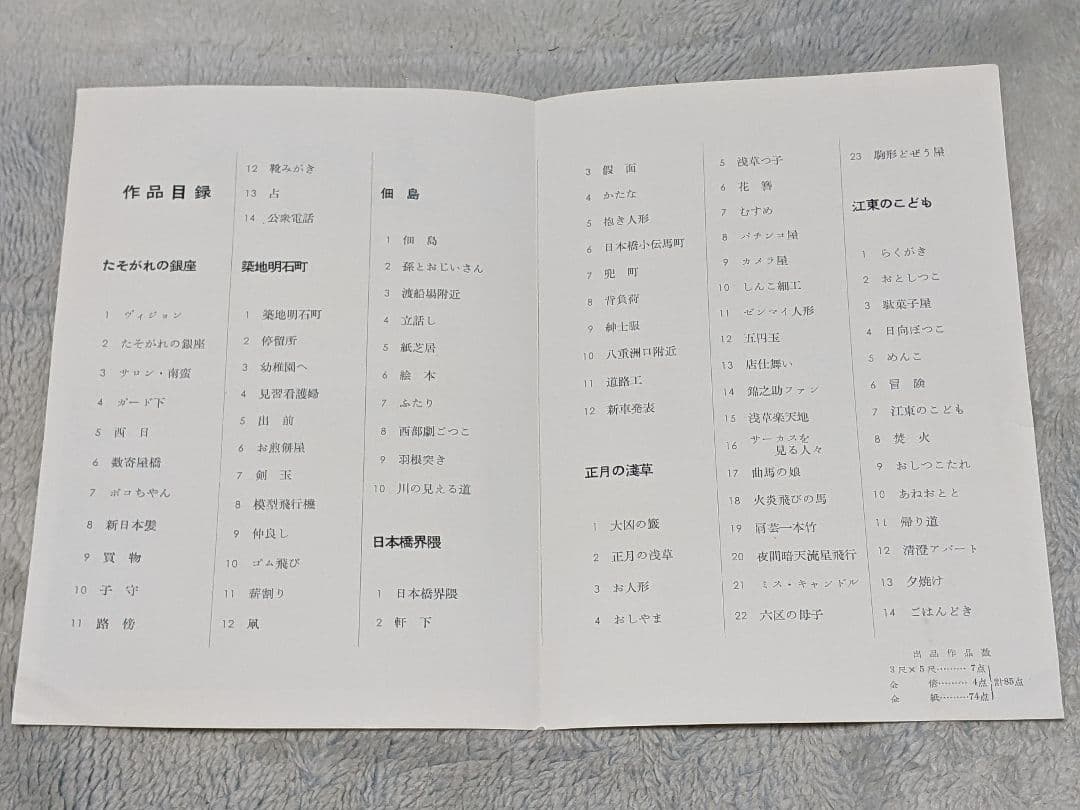 作品目録
たそがれの銀座
1 ヴィジョン
2 たそがれの銀座
3 サロン・南蛮
4 ガード下
5 西日
6 数寄屋橋
7 ポコちやん
8 新日本髪
9 買物
10 子守
11 路傍
12 靴みがき
13 占
14 公衆電話
築地明石町
1 築地明石町
2 停留所
3 幼稚園へ
4 見習看護婦
5 出前
6 お煎餅屋
7 剣玉
8 模型飛行機
9 仲良し
10 ゴム飛び
11 薪割り
12 凧
佃島
1 佃島
2 孫とおじいさん
3 渡船場附近
4 立話し
5 紙芝居
6 絵本
7 ふたり
8 西部劇ごつこ
9 羽根突き
10 川の見える道
日本橋界隈
1 日本橋界隈
2 軒下
3 假面
4 かたな
5 抱き人形
6 日本橋小伝馬町
7 兜町
8 背負荷
9 紳士服
10 八重洲口附近
11 道路工
12 新車発表
正月の淺草
1 大凶の籤
2 正月の浅草
3 お人形
4 おしやま
5 浅草つ子
6 花簪
7 むすめ
8 パチンコ屋
9 カメラ屋
10 しんこ細工
11 ゼンマイ人形
12 五円玉
13 店仕舞い
14 錦之助ファン
15 浅草楽天地
16 サーカスを
見る人々
17 曲馬の娘
18 火炎飛びの馬
19 肩芸一本竹
20 夜間暗天流星飛行
21 ミス・キャンドル
22 六区の母子
23 駒形どぜう屋
江東のこども
1 らくがき
2 おとしつこ
3 駄菓子屋
4 日向ぼつこ
5 めんこ
6 冒険
7 江東のこども
8 焚火
9 おしつこたれ
10 あねおとと
11 帰り道
12 清澄アパート
13 夕焼け
14 ごはんどき
出品作品数
3尺×5尺………7点
全倍………4点 計85点
全紙………74点